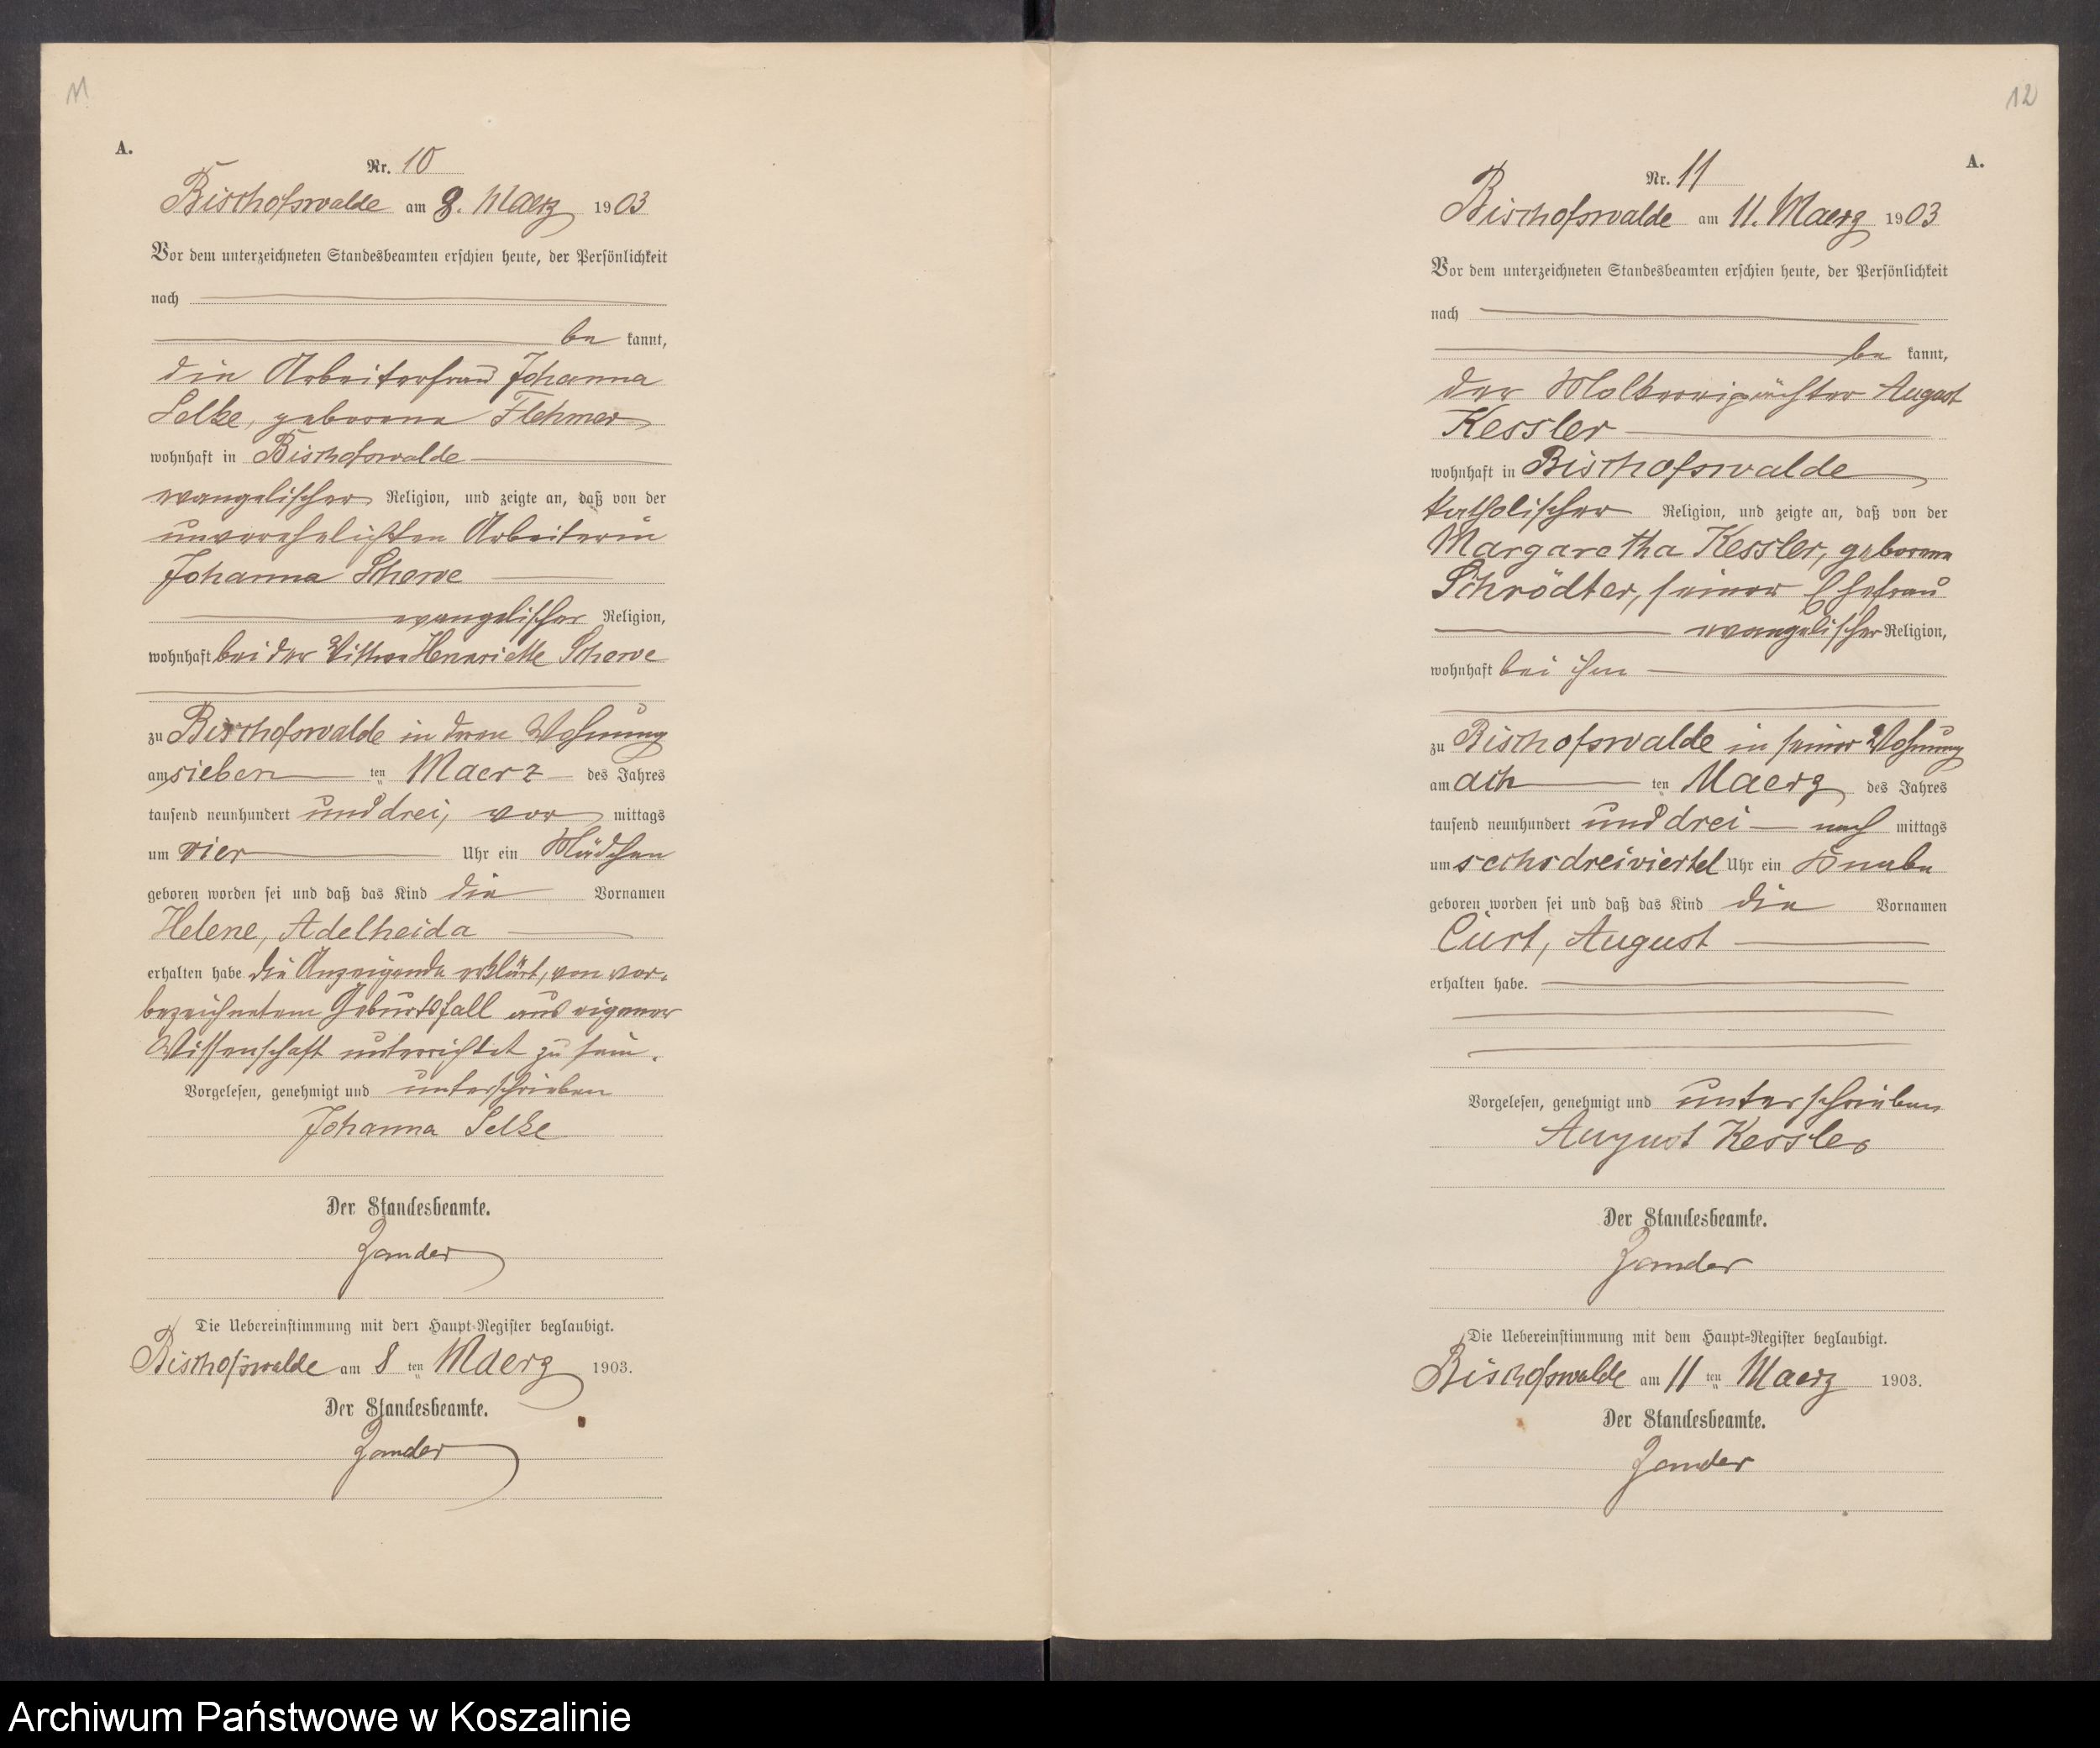 11
A.
Nr. 10
Bischofswalde am 8. Maerz 1903
Vor dem unterzeichneten Standesbeamten erschien heute, der Persönlichkeit
nach
be kannt,
die Arbeiterfrau Johanna
Selke, geborene Flehmer
wohnhaft in Bischofswalde
evangelischer Religion, und zeigte an, daß von der
unverehelichten Arbeiterin
Johanna Scherve
evangelischer Religion,
wohnhaft bei der Wittwe Henriette Scherve
zu Bischofswalde in deren Wohnung
am sieben ten Maerz des Jahres
tausend neunhundert und drei, vor mittags
um vier Uhr ein Mädchen
geboren worden sei und daß das Kind die Vornamen
Helene, Adelheida
erhalten habe die Anzeigende erklärt, von vor-
bezeichnetem Geburtsfall aus eigener
Wissenschaft unterrichtet zu sein.
Vorgelesen, genehmigt und unterschrieben
Johanna Selke
Der Standesbeamte.
Zander
Die Uebereinstimmung mit dem Haupt-Register beglaubigt.
Bischofswalde am 8 ten Maerz 1903.
Der Standesbeamte.
Zander
12
A.
Nr. 11
Bischofswalde am 11. Maerz 1903
Vor dem unterzeichneten Standesbeamten erschien heute, der Persönlichkeit
nach
be kannt,
der Molkereipächter August
Kessler
wohnhaft in Bischofswalde
katholischer Religion, und zeigte an, daß von der
Margaretha Kessler, geborene
Schrödter, seiner Ehefrau
evangelischer Religion,
wohnhaft bei ihm
zu Bischofswalde in seiner Wohnung
am ach ten Maerz des Jahres
tausend neunhundert und drei nach mittags
um sechsdreiviertel Uhr ein Knabe
geboren worden sei und daß das Kind die Vornamen
Curt, August
erhalten habe.
Vorgelesen, genehmigt und unterschrieben
August Kessler
Der Standesbeamte.
Zander
Die Uebereinstimmung mit dem Haupt-Register beglaubigt.
Bischofswalde am 11 ten Maerz 1903.
Der Standesbeamte.
Zander
Archiwum Państwowe w Koszalinie